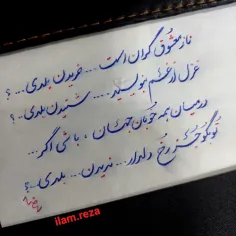 ناز معشوق گران است .... خریدن بلدی...؟
غزل از غم بنویسند .... شنیدن بلدی...؟
درمیان همه خوبان جهان ، باشی اگر...
تو بگو جز رخ دلدار... ندیدن... بلدی...؟
ilam.reza